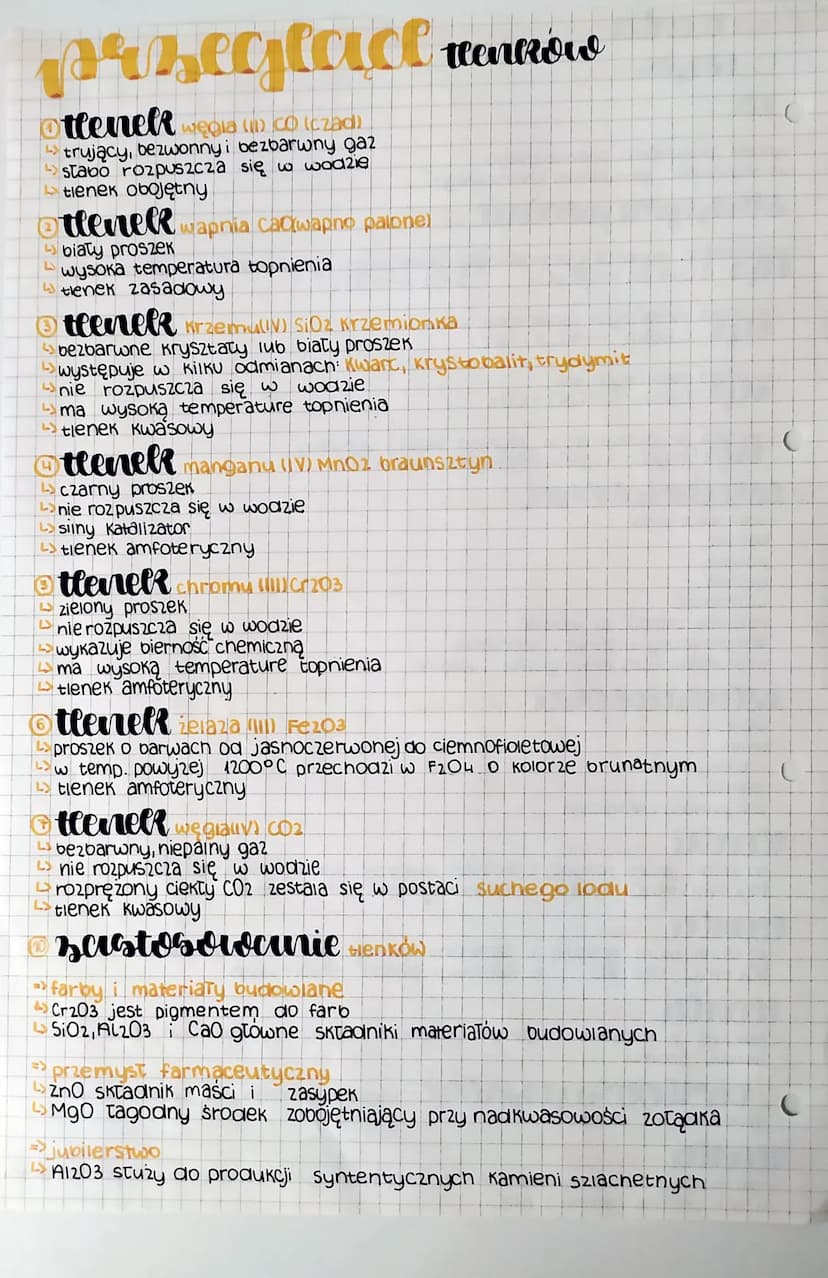 przegląd tlenków
① tlenek węgla (II) CO (czad)
↳ trujący, bezwonny i bezbarwny gaz
↳ słabo rozpuszcza się w wodzie
↳ tlenek obojętny
② tlenek wapnia CaO(wapno palone)
↳ biały proszek
↳ wysoka temperatura topnienia
↳ tlenek zasadowy
③ tlenek krzemu(IV) SiO2 krzemionka
↳ bezbarwne kryształy lub biały proszek
↳ występuje w kilku odmianach: kwarc, krystobalit, trydymit
↳ nie rozpuszcza się w wodzie
↳ ma wysoką temperature topnienia
↳ tlenek kwasowy
④ tlenek manganu (IV) MnO2 braunsztyn
↳ czarny proszek
↳ nie rozpuszcza się w wodzie
↳ silny katalizator
↳ tlenek amfoteryczny
⑤ tlenek chromu (III) Cr2O3
↳ zielony proszek
↳ nie rozpuszcza się w wodzie
↳ wykazuje bierność chemiczną
↳ ma wysoką temperature topnienia
↳ tlenek amfoteryczny
⑥ tlenek żelaza (III) Fe2O3
↳ proszek o barwach od jasnoczerwonej do ciemnofioletowej
↳ w temp. powyżej 1200°C przechodzi w F2O4 o kolorze brunatnym
↳ tlenek amfoteryczny
⑦ tlenek węgla(IV) CO2
↳ bezbarwny, niepalny gaz
↳ nie rozpuszcza się w wodzie
↳ rozprężony ciekły CO2 zestala się w postaci suchego lodu
↳ tlenek kwasowy
zastosowanie tlenków
⇒ farby i materiały budowlane
↳ Cr2O3 jest pigmentem do farb
↳ SiO2, Al2O3 i CaO główne składniki materiałów budowlanych
⇒ przemysł farmaceutyczny
↳ ZnO składnik maści i zasypek
↳ MgO łagodny środek zobojętniający przy nadkwasowości żołądka
⇒ jubilerstwo
↳ Al2O3 służy do produkcji syntentycznych kamieni szlachetnych